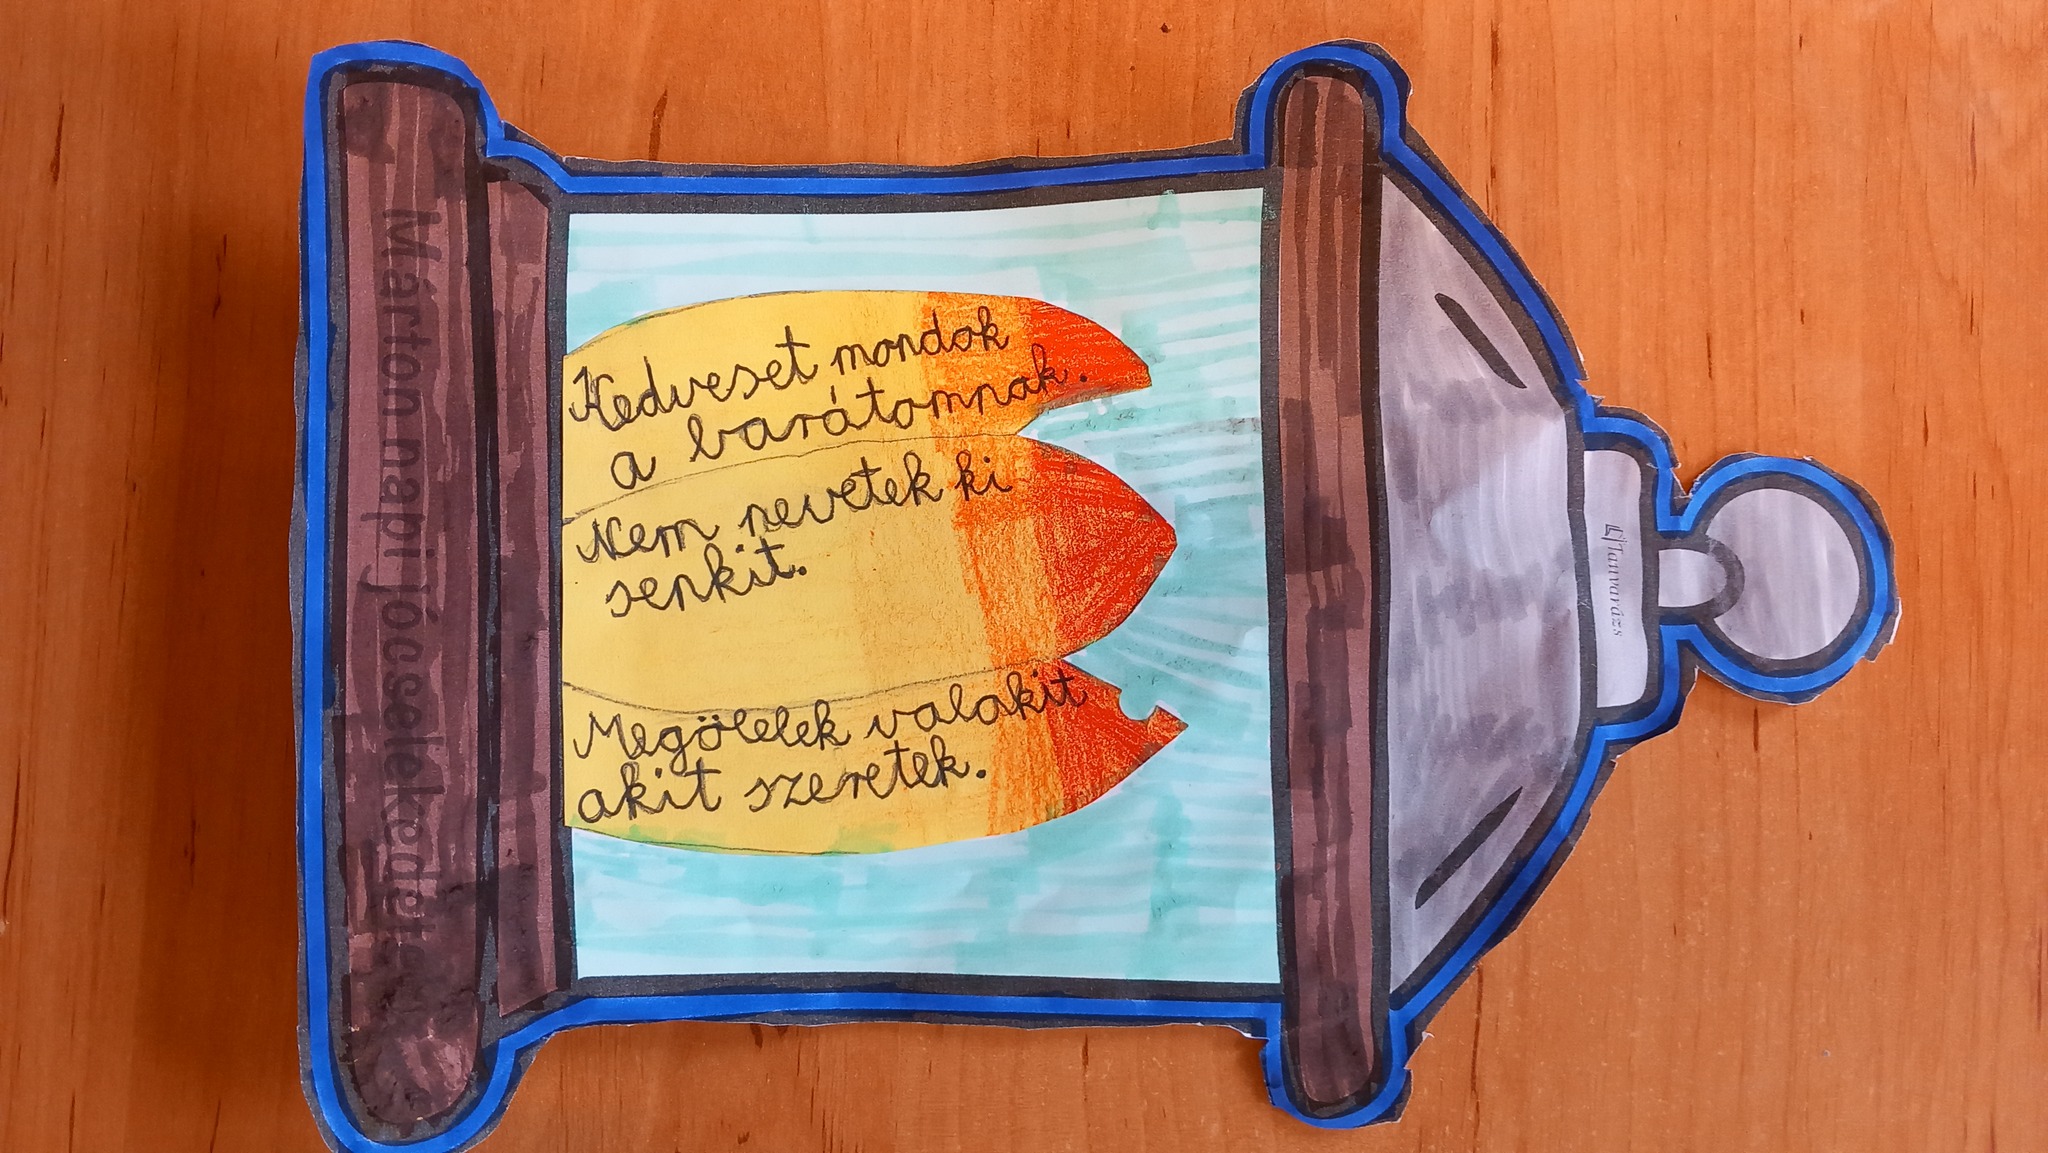 Kedveset mondok
a barátomnak.
Nem nevetek ki
senkit.
Megölelek valakit
akit szeretek.
Márton napi jócselekedetek
Tanvarázs